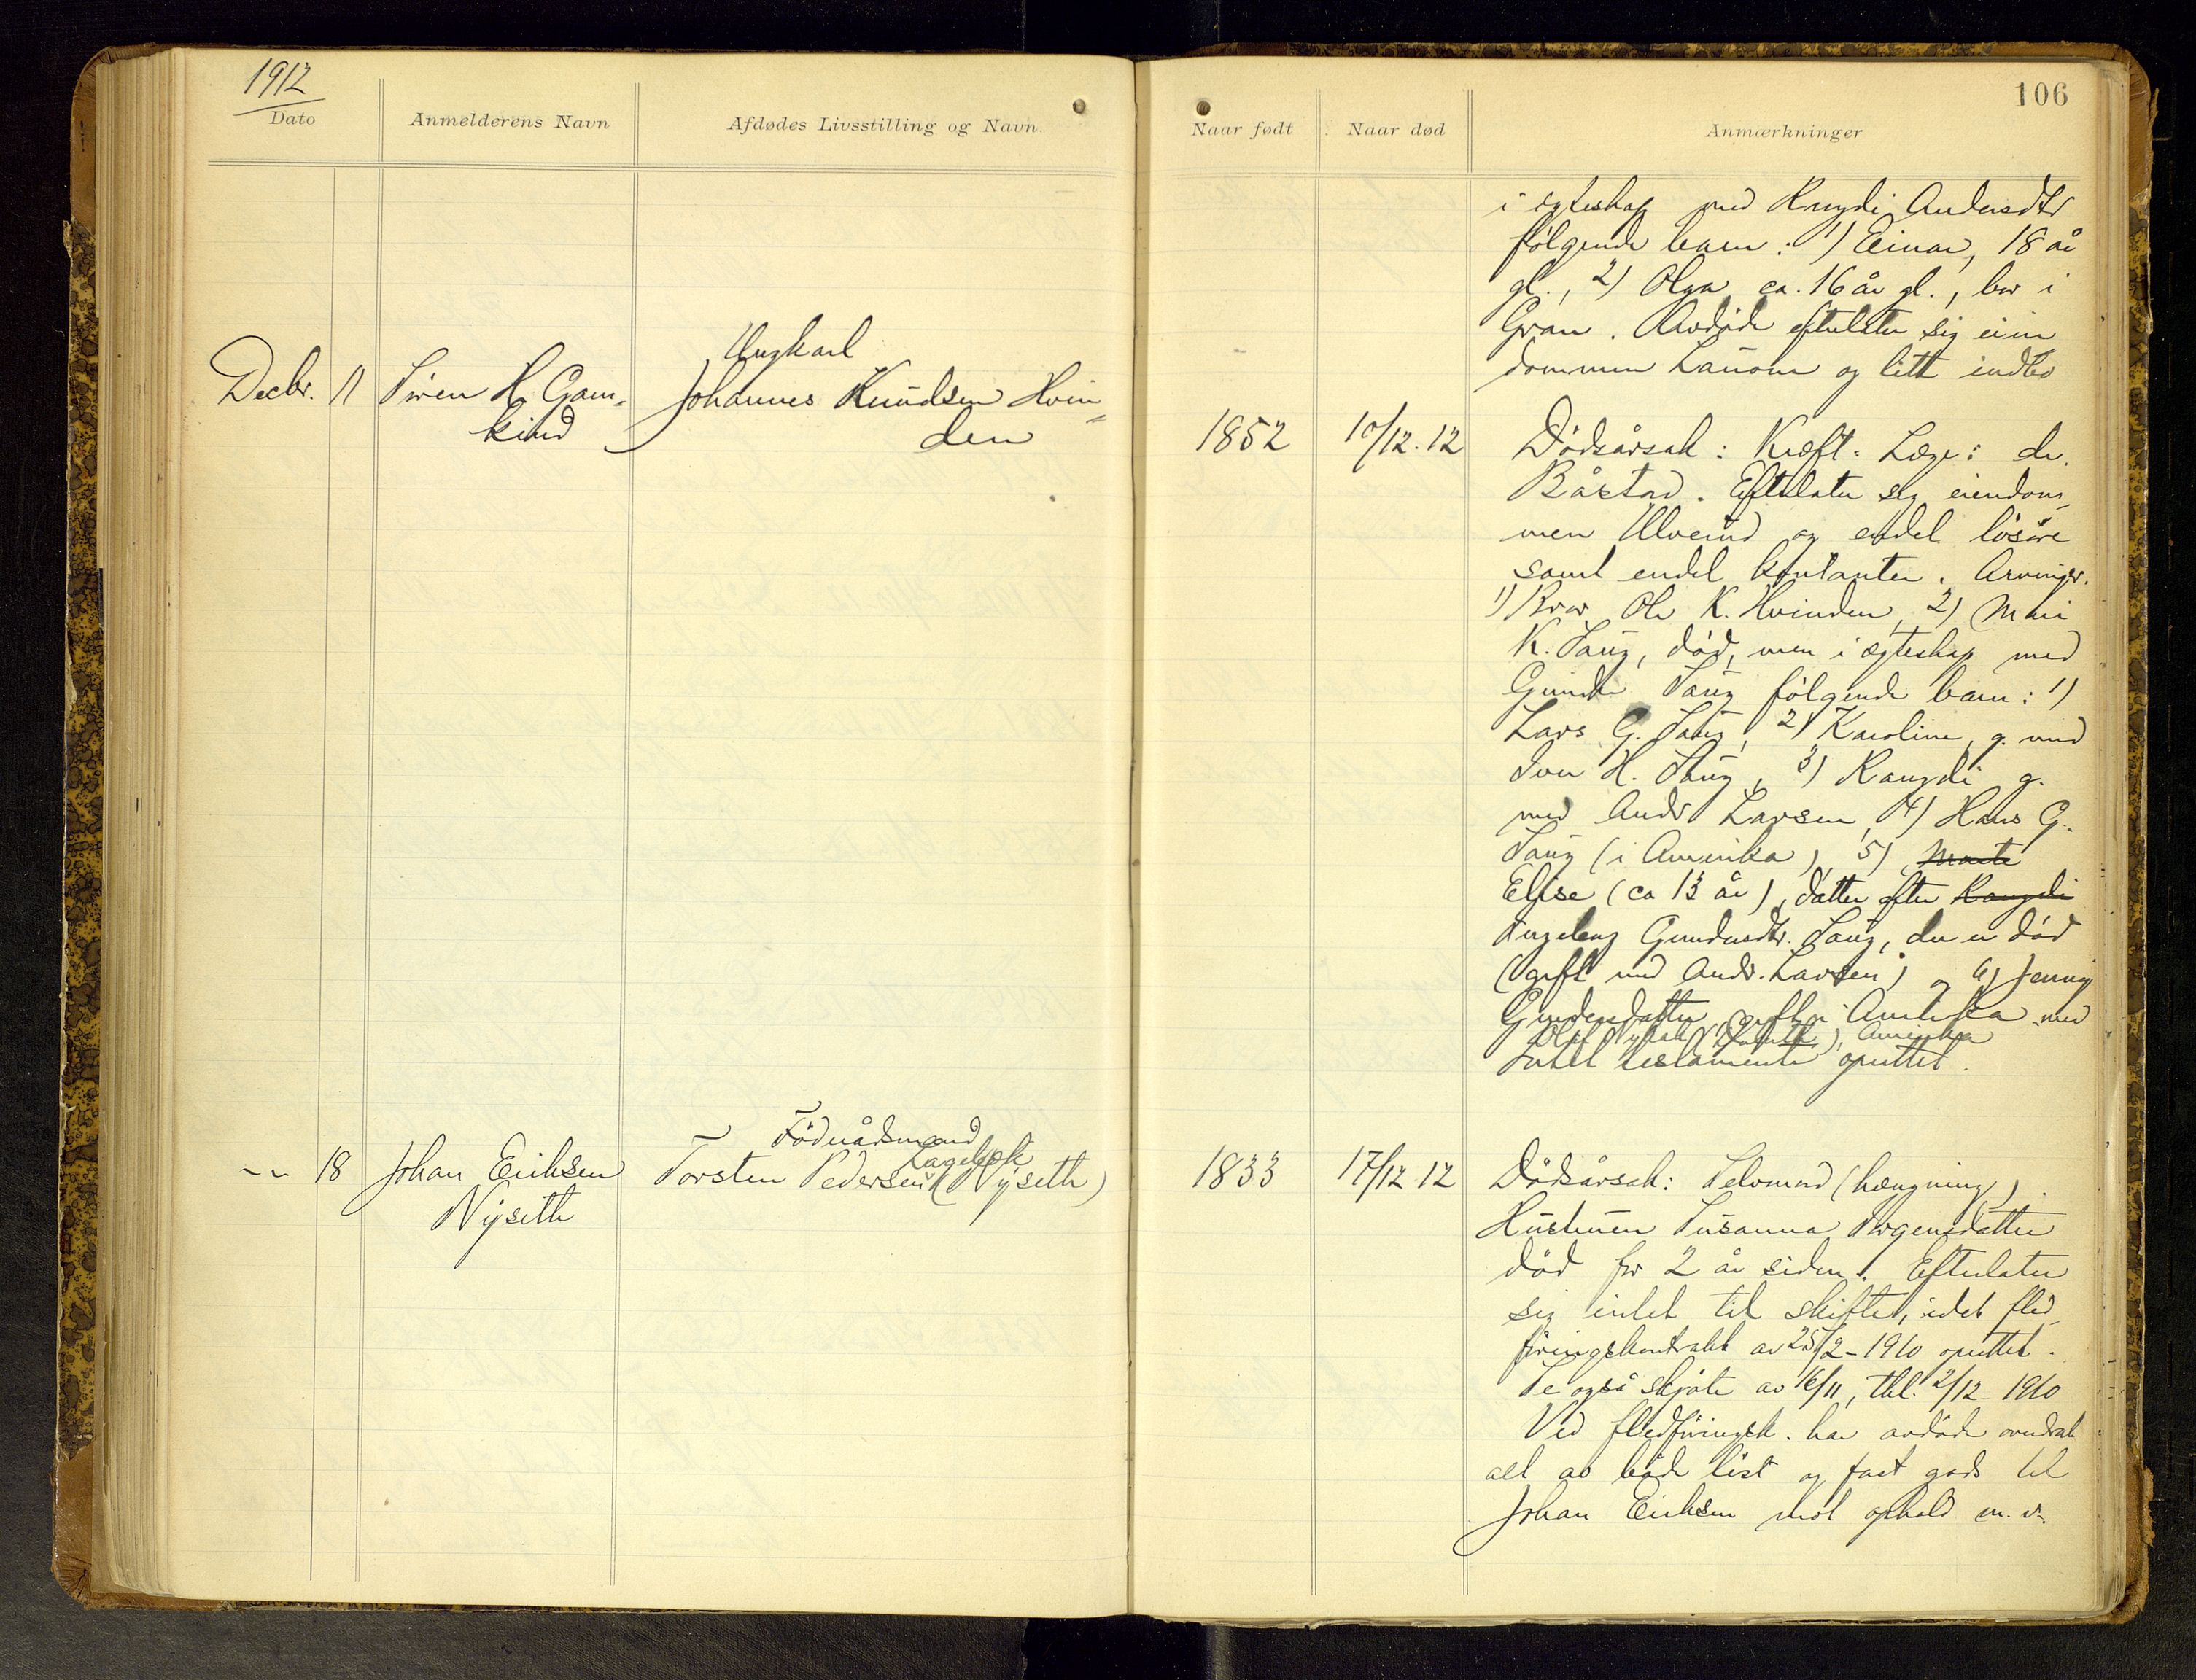 1912
106
Dato
Anmelderens Navn
Afdødes Livsstilling og Navn.
Naar født
Naar død
Anmærkninger
i egteskap med Rangdi Andersdtr
følgende barn: 1) Einar, 18 år
gl., 2) Olga ca. 16 år gl., bor i
Gran. Avdøde efterlater sig eien
dommen og litt indbo
Decbr. 11
Sören H. Gam-
kind
Ungkarl
Johannes Knudsen Hvin-
den
1852
10/12. 12
Dödsårsak: Kræft. Læge: dr.
Bårstad. Efterlater sig eiendom
men Ulverud og endel lösöre
samt endel kontanter. Arvinger.
1) Bror Ole K. Hvinden, 2) Mari
K. Saug, död, men i egteskap med
Gunder Saug fölgende barn: 1)
Lars G. Saug, 2) Karoline, g. med
Iver H. Saug, 3) Rangdi g.
med Andr Larsen, 4) Hans G.
Saug (i Amerika), 5) Marte
Elise (ca 13 år), datter efter Rangdi
Ingeborg Gundersdtr. Saug, der er död
(gift med Andr. Larsen) og 6) Jenny
Gundersdatter, gift i Amerika med
Amerika
Intet testamente oprettet.
-"- 18
Johan Eriksen
Nyseth
Föderådsmand
Torsten Pedersen (Nyseth)
1833
17/12 12
Dödsårsak: Selvmord (hængning).
Hustruen Susanna Torgersdatter
död for 2 år siden. Efterlater
sig intet til skifte, idet fled
föringskontrakt av 25/2-1910 oprettet.
Se også skjöte av 16/11, thl. 2/12 1910
Ved fledföringsk. har avdöde overdrat
alt av både löst og fast gods til
Johan Eriksen mot ophold m. v.